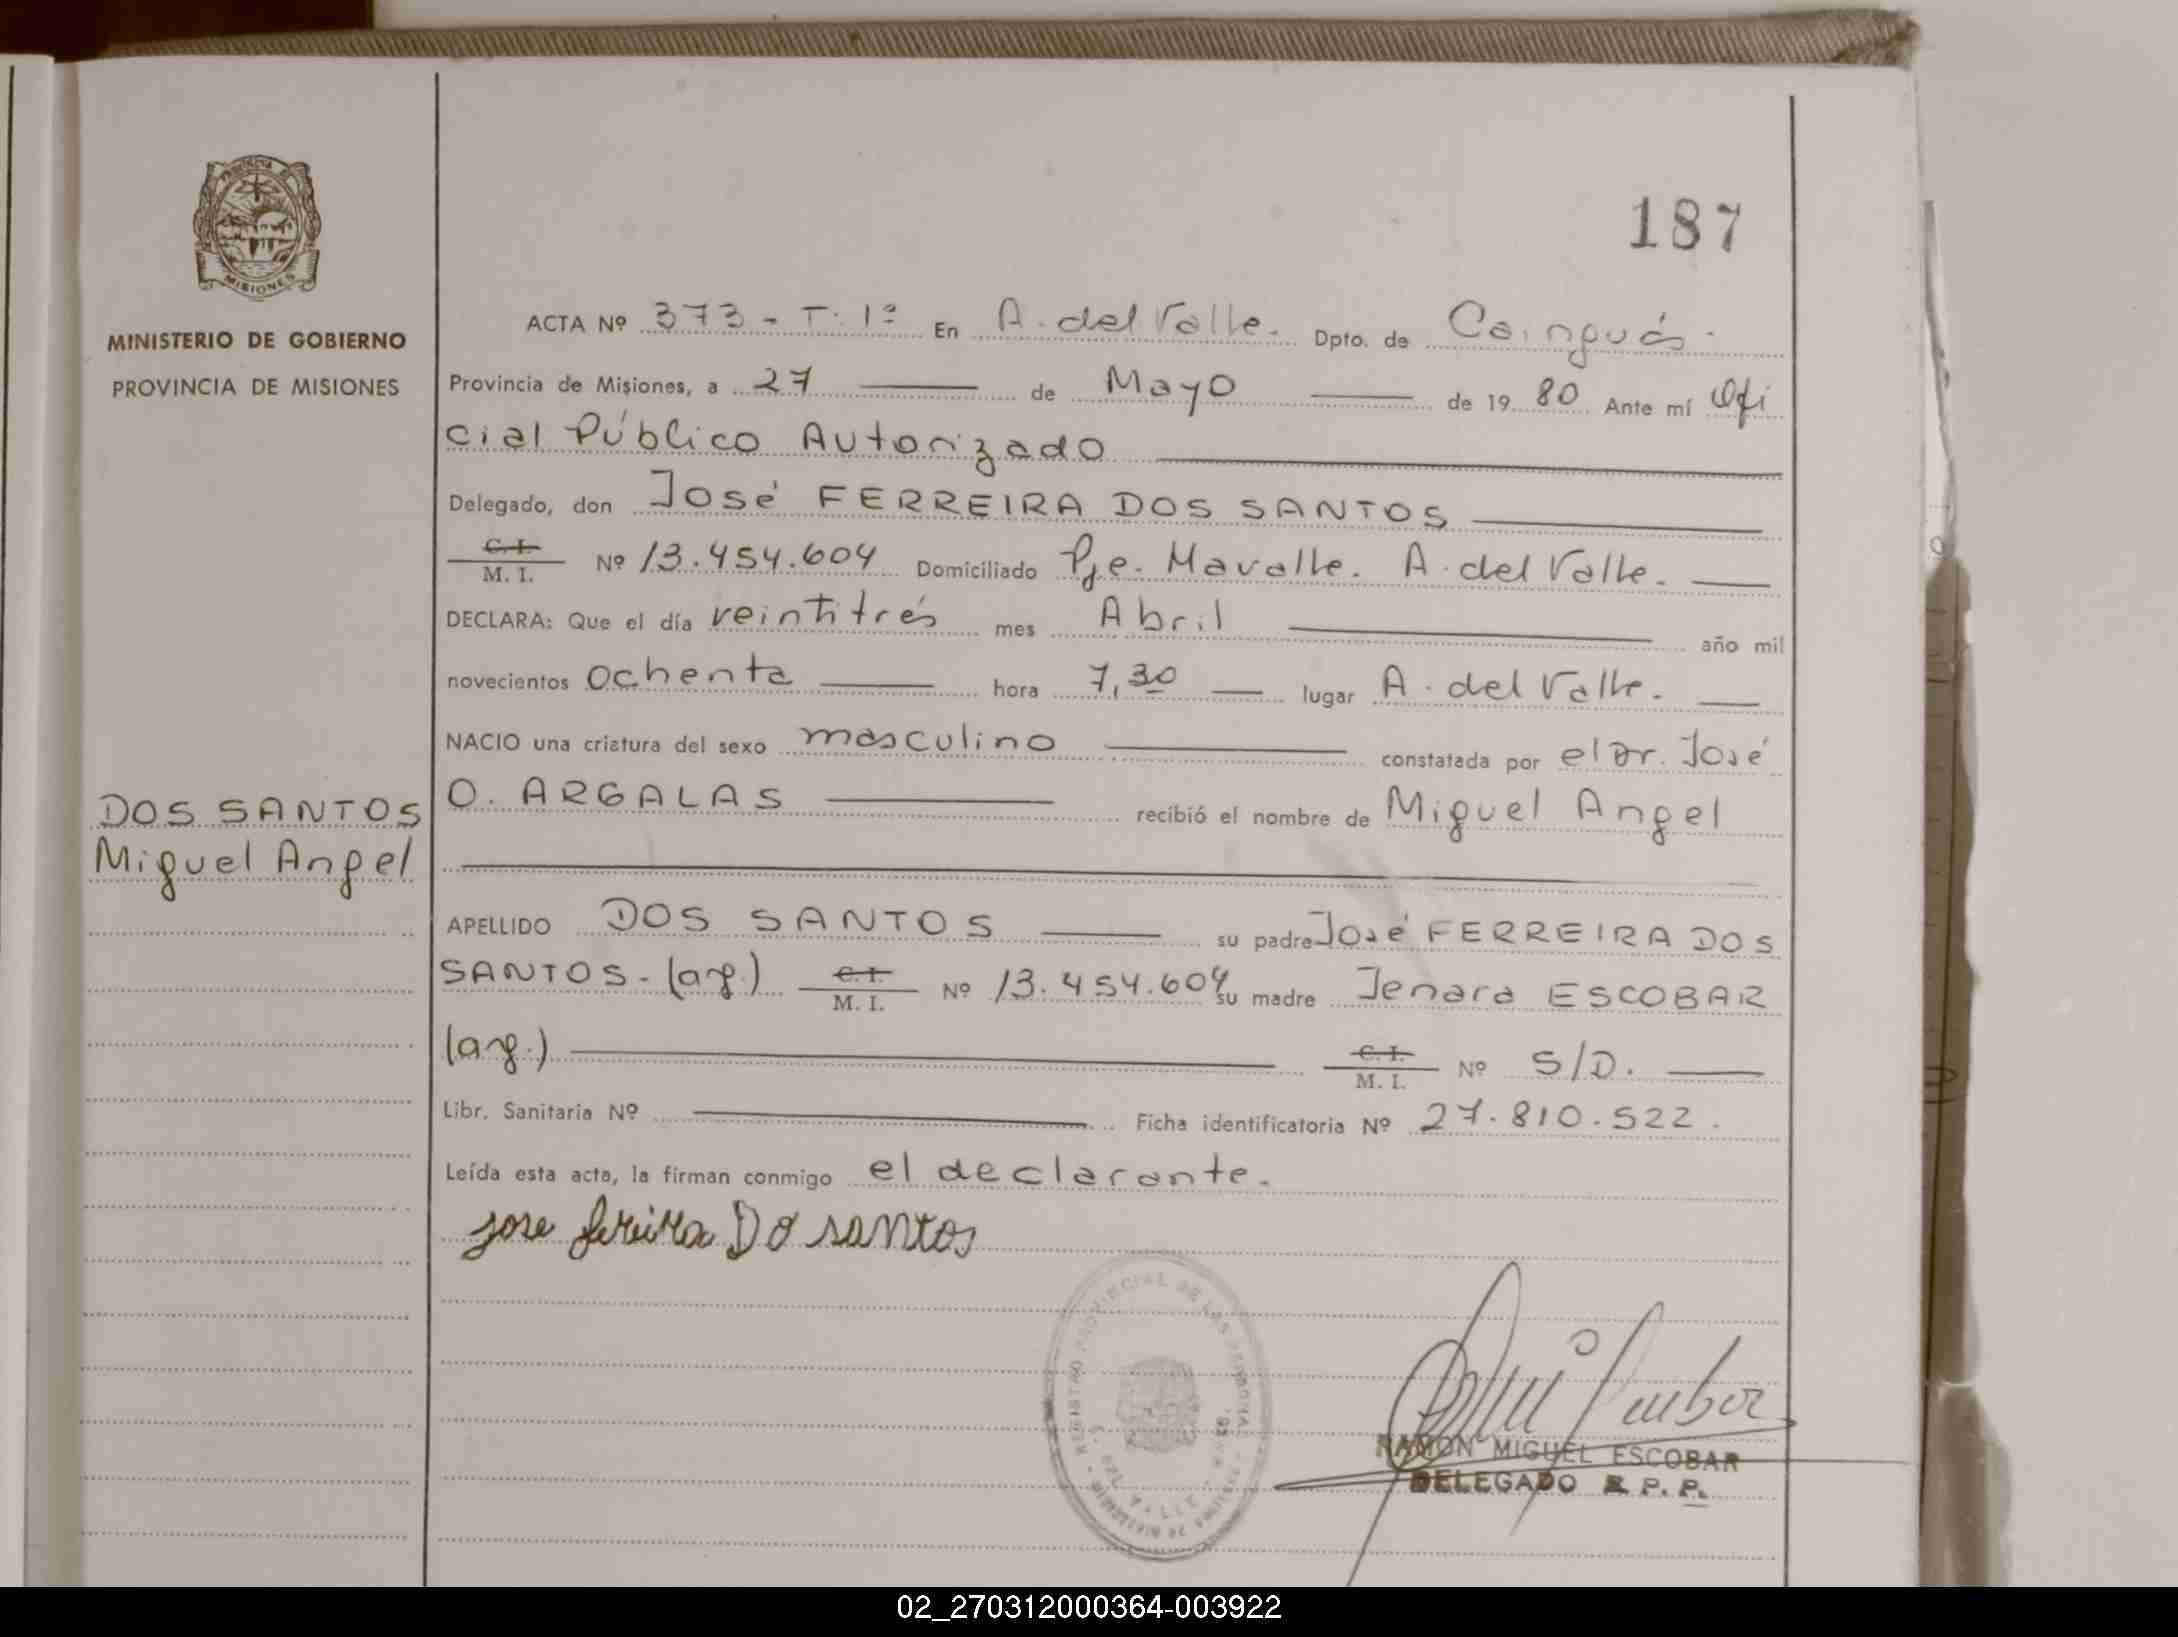 187
MISIONES
MINISTERIO DE GOBIERNO
PROVINCIA DE MISIONES
DOS SANTOS
Miguel Angel
ACTA Nº 373 - T. 1º En A. del Valle. Dpto. de Cainguás.
Provincia de Misiones, a 27 de Mayo de 19 80 Ante mí Ofi
cial Público Autorizado
Delegado, don José FERREIRA DOS SANTOS
C. I.
M. I. Nº 13.454.604 Domiciliado Pje. Mavalle. A. del Valle.
DECLARA: Que el día veintitrés mes Abril año mil
novecientos ochenta hora 7,30 lugar A. del Valle.
NACIO una criatura del sexo masculino constatada por el Dr. José
O. ARGALAS recibió el nombre de Miguel Angel
APELLIDO DOS SANTOS su padre José FERREIRA DOS
SANTOS - (arg.) C. I. M. I. Nº 13.454.604 su madre Jenara ESCOBAR
(arg.) C. I. M. I. Nº S/D.
Libr. Sanitaria Nº Ficha identificatoria Nº 27.810.522.
Leída esta acta, la firman conmigo el declarante.
jose fereira Do santos
REGISTRO PROVINCIAL DE LAS PERSONAS
RAMON MIGUEL ESCOBAR
DELEGADO R. P. P.
02_270312000364-003922